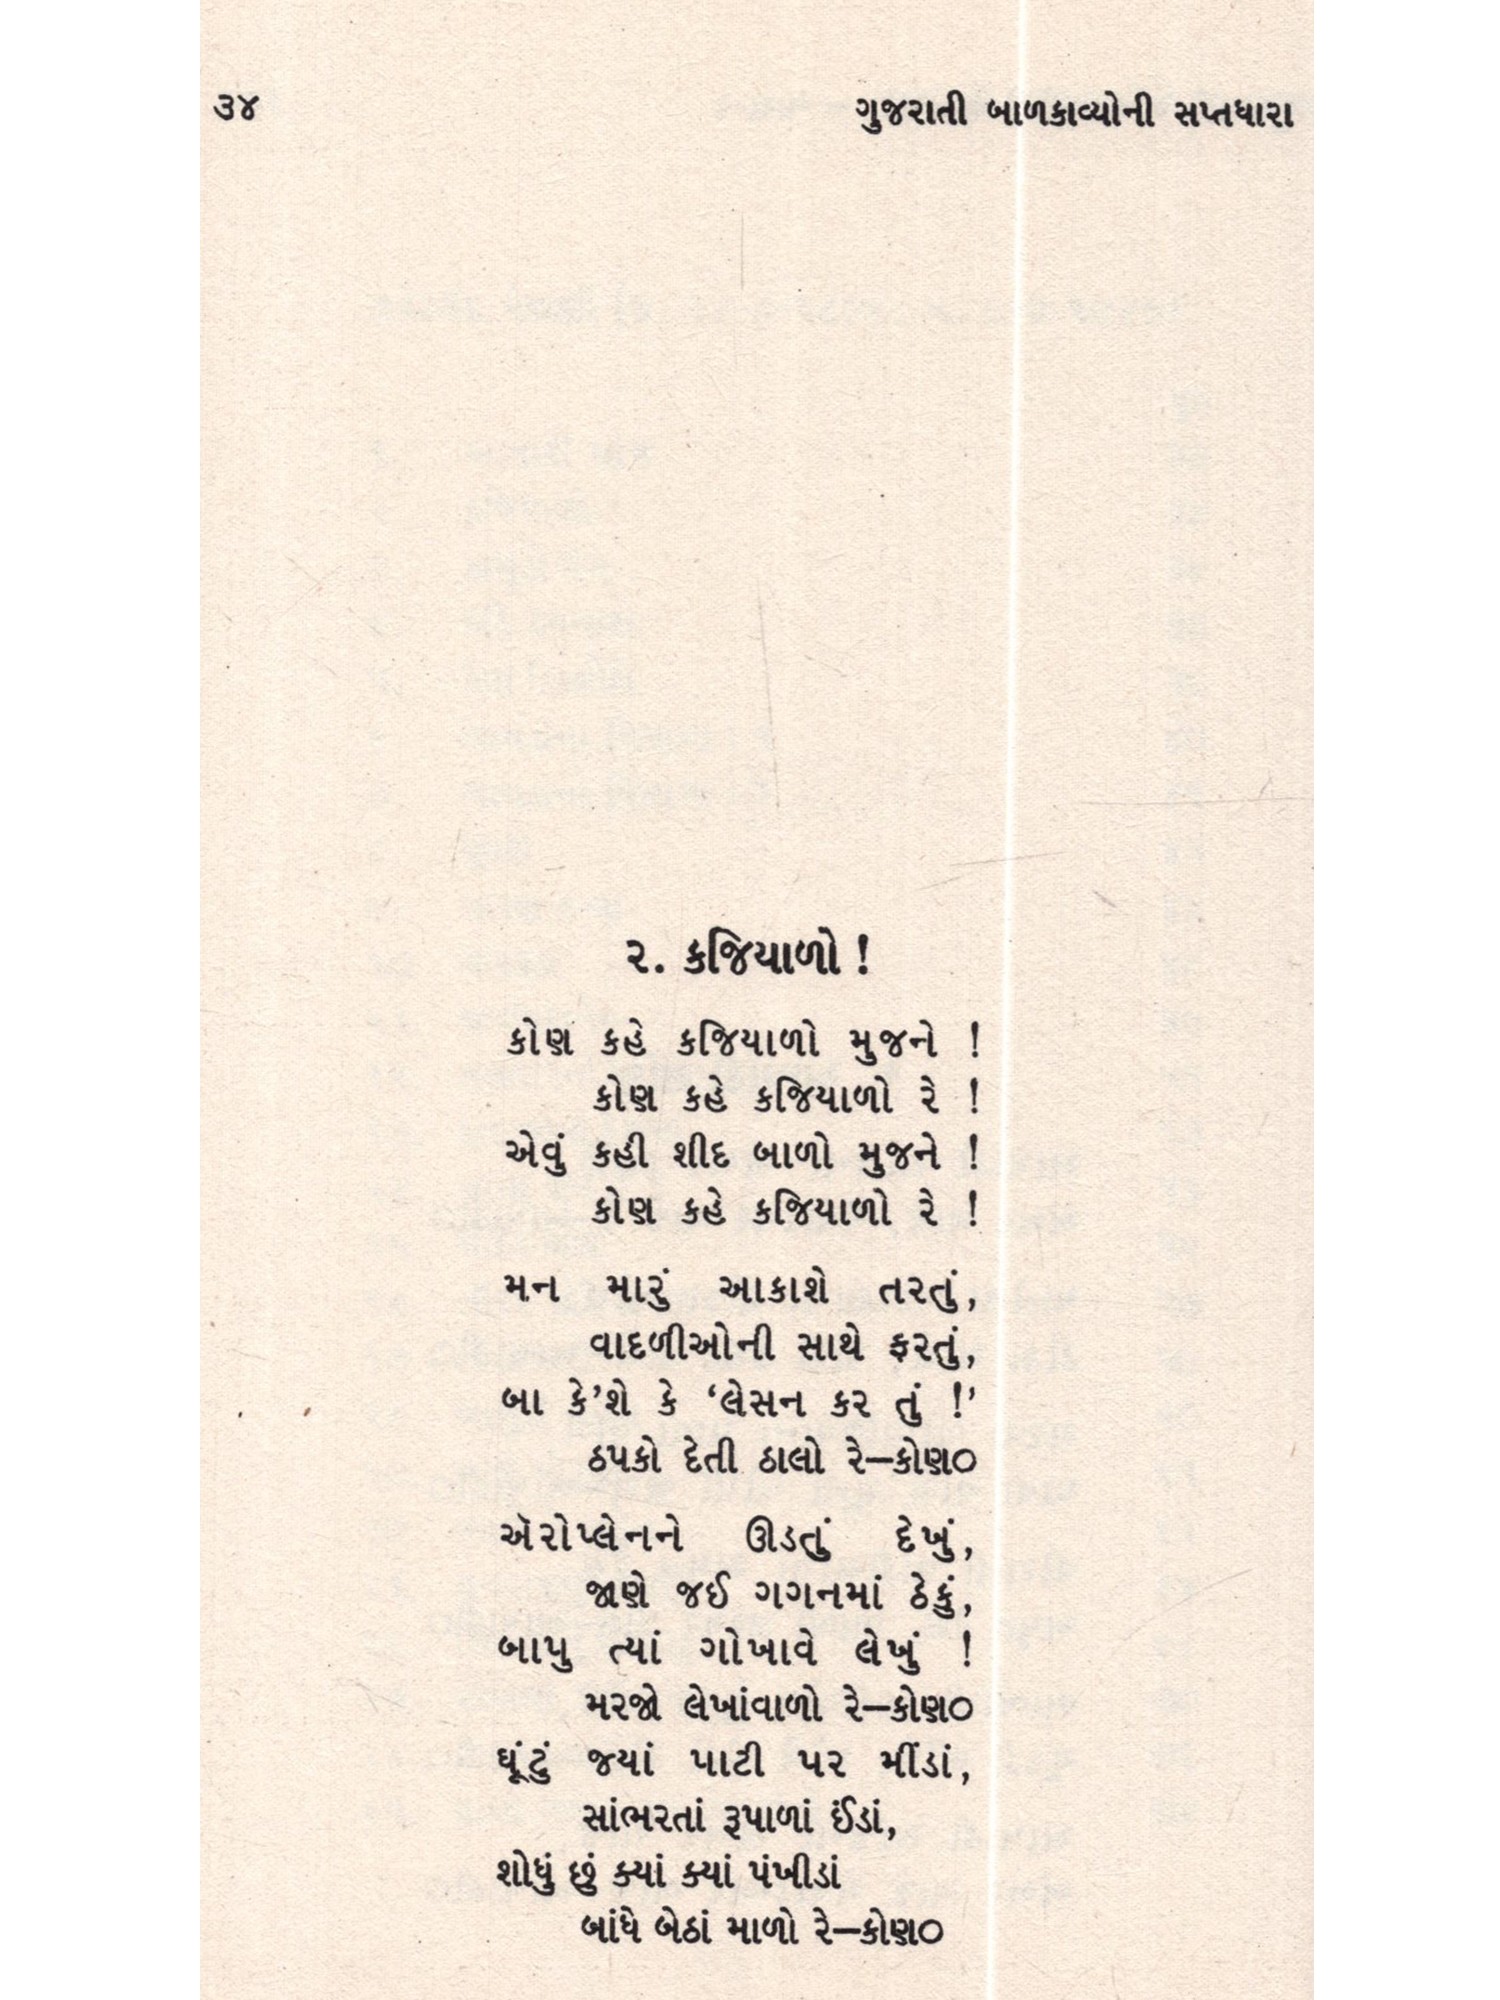 ૩૪ ગુજરાતી બાળકાવ્યોની સપ્તધારા
૨. કજિયાળો !
કોણ કહે કજિયાળો મુજને !
કોણ કહે કજિયાળો રે !
એવું કહી શીદ બાળો મુજને !
કોણ કહે કજિયાળો રે !
મન મારું આકાશે તરતું,
વાદળીઓની સાથે ફરતું,
બા કે’શે કે ‘લેસન કર તું !’
ઠપકો દેતી ઠાલો રે—કોણ૦
ઍરોપ્લેનને ઊડતું દેખું,
જાણે જઈ ગગનમાં ઠેકું,
બાપુ ત્યાં ગોખાવે લેખું !
મરજો લેખાંવાળો રે—કોણ૦
ઘૂંટું જયાં પાટી પર મીંડાં,
સાંભરતાં રૂપાળાં ઈંડાં,
શોધું છું ક્યાં ક્યાં પંખીડાં
બાંધે બેઠાં માળો રે—કોણ૦